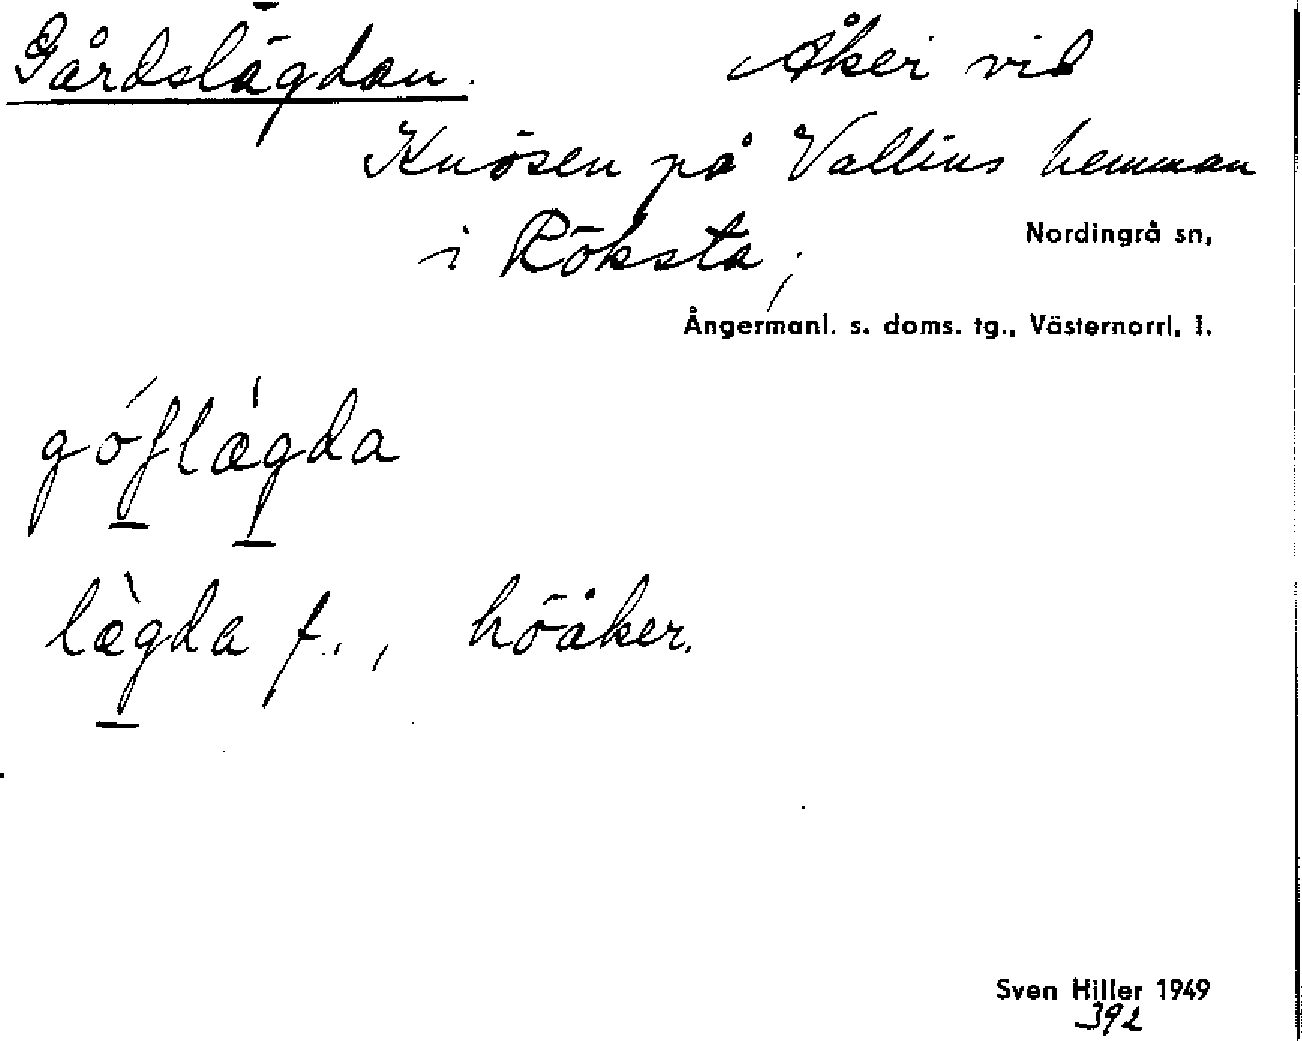 Gårdslägdan. Åker vid
Knösen på Vallins hemman
i Röksta, Nordingrå sn,
Ångermanl. s. doms. tg., Västernorrl. l.
góflǽgda
lægda f., höåker.
Sven Hiller 1949
392